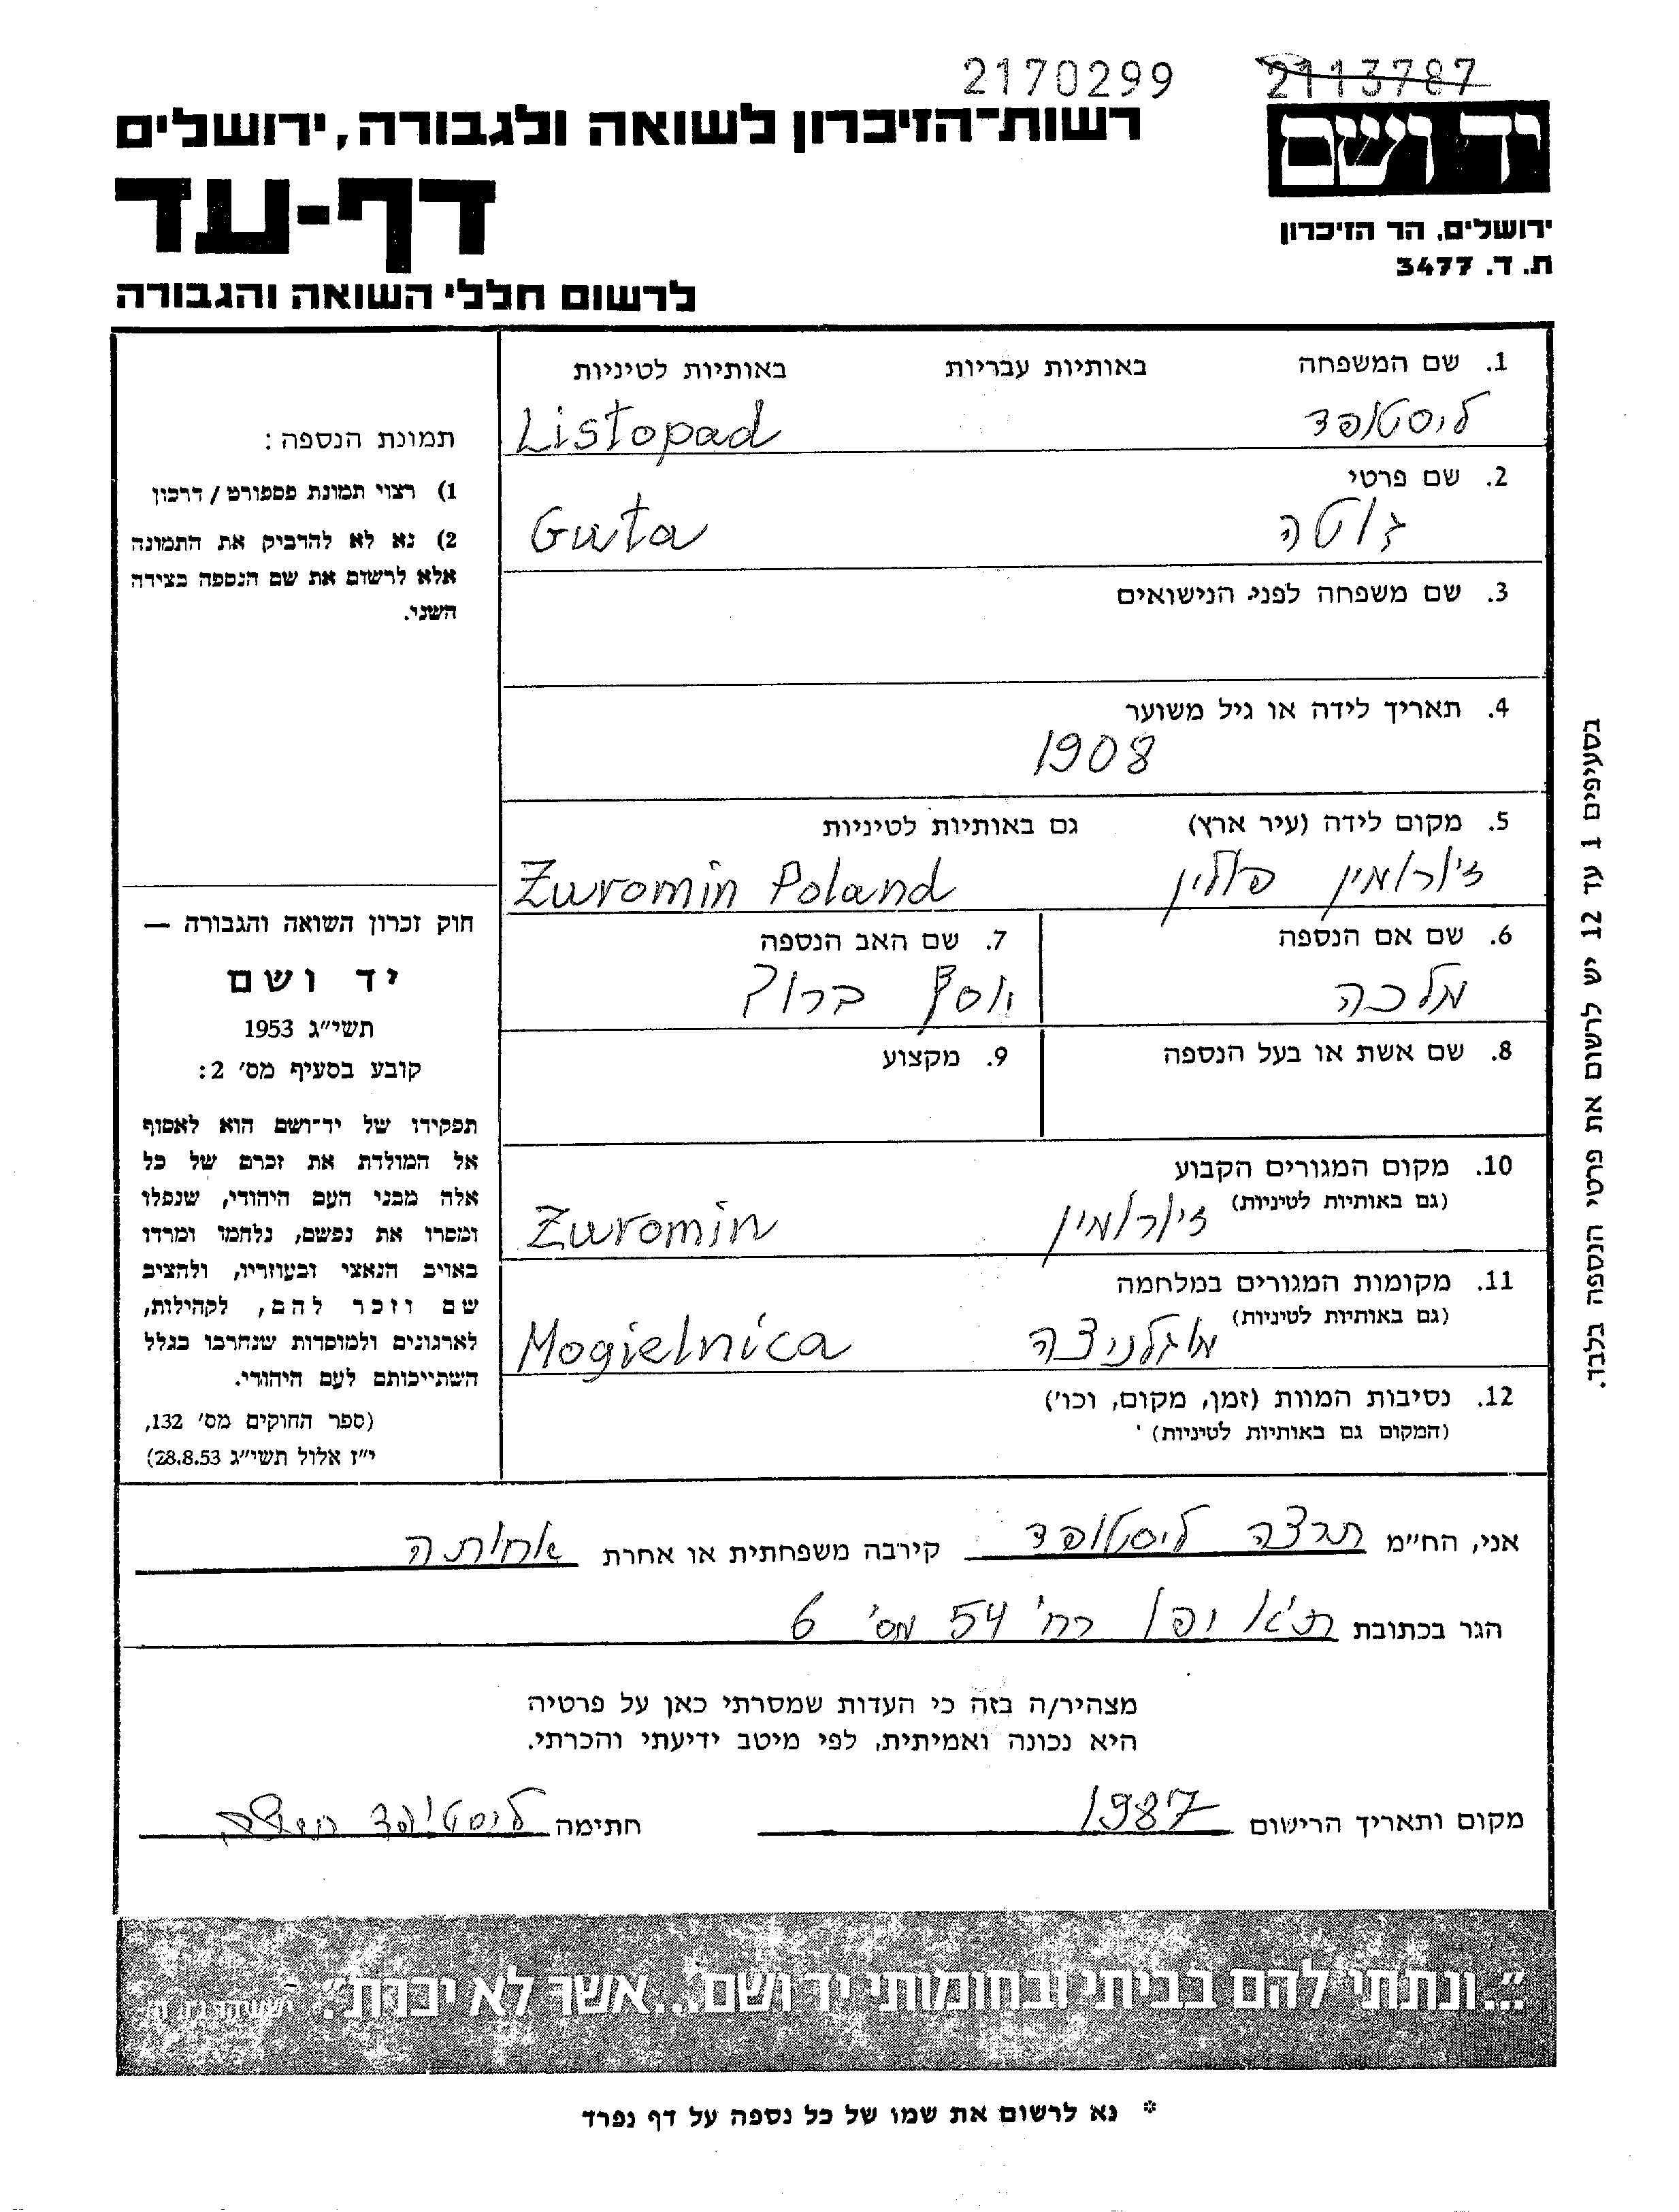 2170299
2113787
יד ושם
רשות־הזיכרון לשואה ולגבורה, ירושלים
דף-עד
ירושלים, הר הזיכרון
ת. ד. 3477
לרשום חללי השואה והגבורה
1. שם המשפחה באותיות עבריות באותיות לטיניות
ליסטופד Listopad
2. שם פרטי
גוטה Guta
3. שם משפחה לפני הנישואים
4. תאריך לידה או גיל משוער
1908
5. מקום לידה (עיר ארץ) גם באותיות לטיניות
ז'ורומין פולין Żuromin Poland
6. שם אם הנספה
מלכה
7. שם האב הנספה
יוסף ברוך
8. שם אשת או בעל הנספה
9. מקצוע
10. מקום המגורים הקבוע
(גם באותיות לטיניות)
ז'ורומין Żuromin
11. מקומות המגורים במלחמה
(גם באותיות לטיניות)
מוגלניצה Mogielnica
12. נסיבות המוות (זמן, מקום, וכו')
(המקום גם באותיות לטיניות)
תמונת הנספה:
1) רצוי תמונת פספורט / דרכון
2) נא לא להדביק את התמונה
אלא לרשום את שם הנספה בצידה
השני.
חוק זכרון השואה והגבורה —
יד ושם
תשי"ג 1953
קובע בסעיף מס' 2:
תפקידו של יד־ושם הוא לאסוף
אל המולדת את זכרם של כל
אלה מבני העם היהודי, שנפלו
ומסרו את נפשם, נלחמו ומרדו
באויב הנאצי ובעוזריו, ולהציב
שם וזכר להם, לקהילות,
לארגונים ולמוסדות שנחרבו בגלל
השתייכותם לעם היהודי.
(ספר החוקים מס' 132,
י"ז אלול תשי"ג 28.8.53)
בסעיפים 1 עד 12 יש לרשום את פרטי הנספה בלבד.
אני, הח"מ תרצה ליסטופד קירבה משפחתית או אחרת אחותה
הגר בכתובת ת"א יפו רח' 54 מס' 6
מצהיר/ה בזה כי העדות שמסרתי כאן על פרטיה
היא נכונה ואמיתית, לפי מיטב ידיעתי והכרתי.
מקום ותאריך הרישום 1987 חתימה ליסטופד תרצה
"...ונתתי להם בביתי ובחומותי יד ושם...אשר לא יכרת". ישעיהו נ"ו, ה'.
* נא לרשום את שמו של כל נספה על דף נפרד